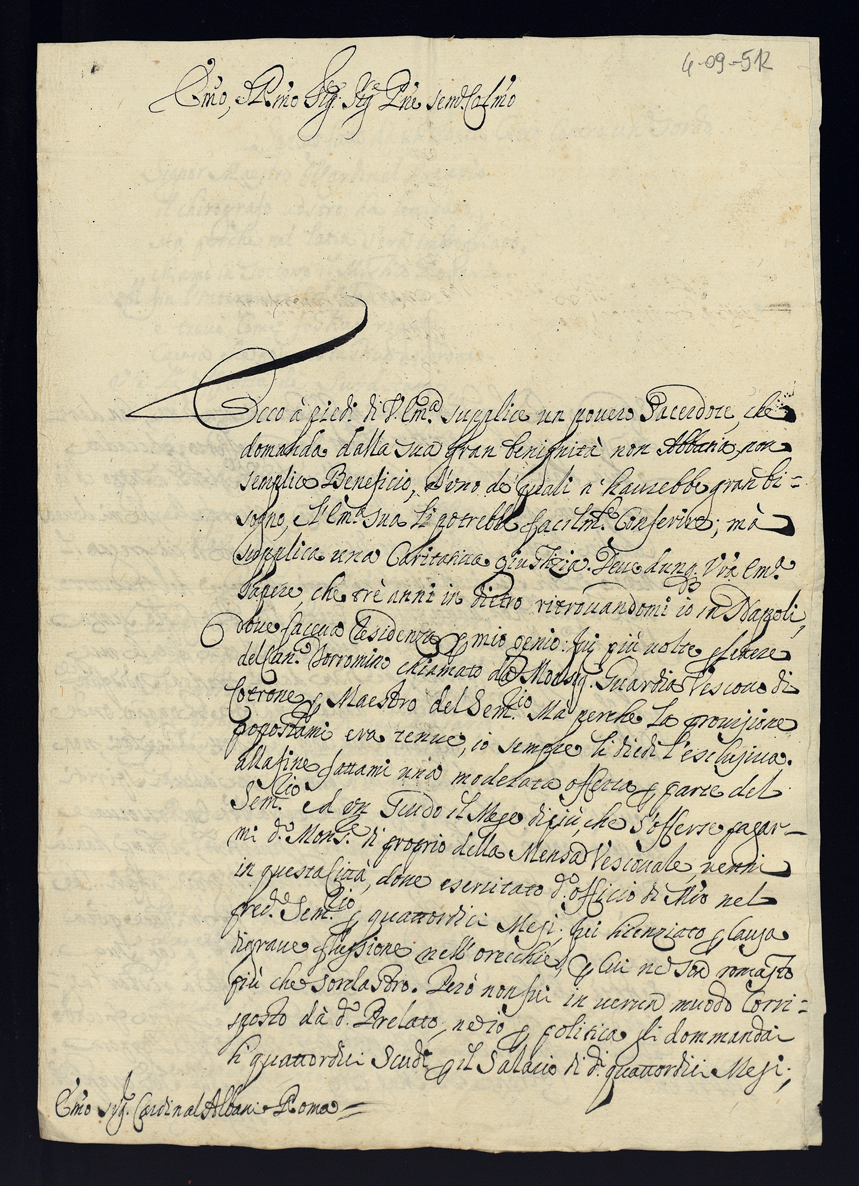 4-09-512
Emo, e Rmo Sig. Sig. Pne sem. Colmo
Ecco à piedi di V. Em.a supplice un povero Sacerdote, che
domanda dalla sua gran benignità non Abbatia, non
semplice Beneficio, d'uno de quali n'haurebbe gran bi=
sogno, e l'Em.a sua li potrebbe facilm.te Conferire; mà
supplica una Caritativa giustizia. Deve dunq. V.ra Em.a
sapere, che trè anni in dietro ritrovandomi io in Napoli,
dove faceva Residenza p mio genio: fui più volte p lettere
del Can.o Borromino chiamato da Monsig. Guardia Vescovo di
Cotrone p Maestro del Sem.rio Ma perche la provisione
propostami era tenue, io sempre li diedi l'esclusiva.
alla fine fattami una moderata offerta p parte del
Sem.rio ed un Scudo il Mese di più, che s'offerse pagar=
mi d.o Mons.r di proprio della Mensa Vescovale, venni
in questa Città, dove esercitato d.o officio di Mro nel
pred.o Sem.rio p quattordici Mesi, fui licenziato p causa
di grave flussione nell'orecchie, p cui ne son romasto
più che sordastro. Però non fui in verun muodo Corri=
sposto dà d.o Prelato, ne io p politica li dommandai
li quattordici Scudi p il Salario di d.i quattordici Mesi;
Emo Sig. Cardinal Albani Roma =